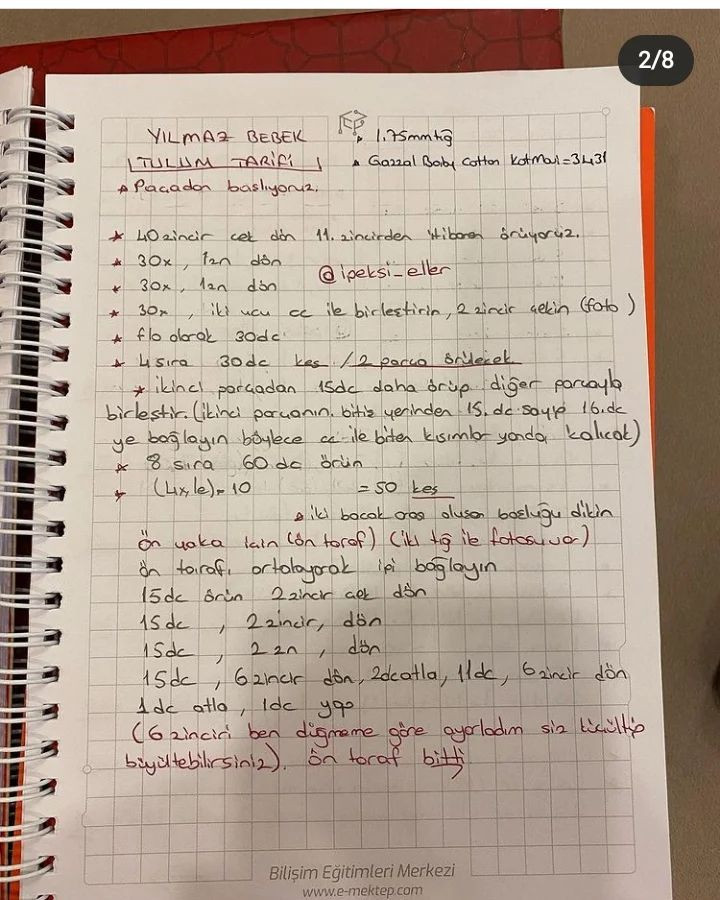 2/8
YILMAZ BEBEK
TULUM TARİFİ
▲ 1.75mm tığ
▲ Gazzal Baby Cotton Kotmavi=3431
▲ Paçadan başlıyoruz.
★ 40 zincir çek dön 11. zincirden itibaren örüyoruz.
★ 30x, 1zn dön
@ipeksi_eller
★ 30x, 1zn dön
★ 30x, iki ucu cc ile birleştirin, 2 zincir çekin (foto)
★ flo olarak 30dc
★ 4 sıra 30dc kes / 2 parça örülecek
★ ikinci parçadan 15dc daha örüp diğer parçayla
birleştir. (ikinci parçanın bitiş yerinden 15. dc sayıp 16. dc
ye bağlayın böylece cc ile biten kısımlar yanda kalıcak)
★ 8 sıra 60 dc örün
★ (4x,1e)*10 =50 kes
▲ iki bacak arası oluşan boşluğu dikin
ön yaka için (ön taraf) (iki tığ ile fotosu var)
ön tarafı ortalayarak ipi bağlayın
15dc örün 2 zincir çek dön
15dc, 2 zincir, dön
15dc, 2 zn, dön
15dc, 6 zincir dön, 2dc atla, 11dc, 6 zincir dön
1dc atla, 1dc yap
(6 zinciri ben düğmeme göre ayarladım siz küçültüp
büyültebilirsiniz). ön taraf bitti
Bilişim Eğitimleri Merkezi
www.e-mektep.com